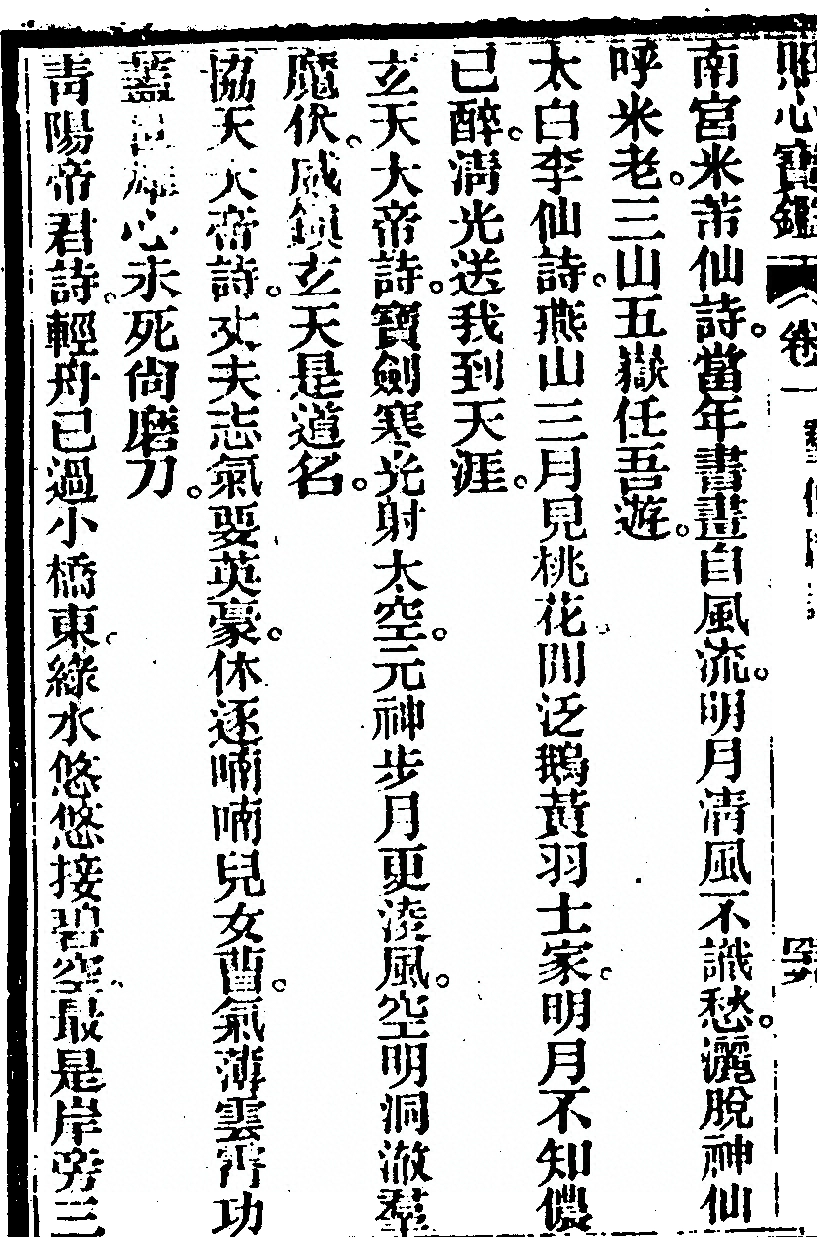 照心寶鑑 卷一
南宮米芾仙詩。當年書畫自風流。明月清風不識愁。灑脫神仙
呼米老。三山五嶽任吾遊。
太白李仙詩。燕山三月見桃花。閒泛鵝黃羽士家。明月不知儂
已醉。清光送我到天涯。
玄天大帝詩。寶劍寒光射太空。元神步月更淩風。空明洞澈羣
魔伏。威鎮玄天是道名。
協天大帝詩。丈夫志氣要英豪。休逐喃喃兒女曹。氣薄雲霄功
蓋世。雄心未死尙磨刀。
靑陽帝君詩。輕舟已過小橋東。綠水悠悠接碧空。最是岸旁三